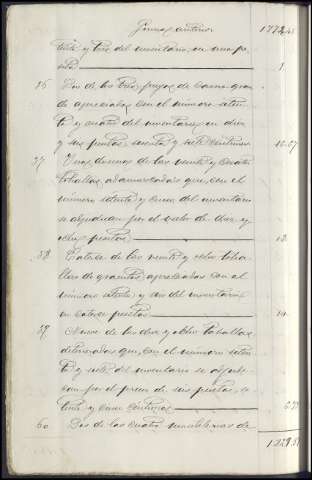 Sumas anterior 1772,25
tenta y tres del inventario, en una pe-
seta 1.
36 Dos de las tres piezas de
de apreciadas con el número seten-
ta y cuatro del inventario en diez
y seis pesetas, sesenta y siete céntimos 16.67
37 Dos docenas de las veinte y cuatro
tohallas adamascadas que, con el
número setenta y cinco del inventario
se adjudican por el valor de diez y
ocho pesetas 18.
38 Catorce de las veinte y ocho toha-
llas de granito, apreciadas con el
número setenta y seis del inventario
en catorce pesetas 14.
39 Nueve de las diez y ocho tohallas
deterioradas que, con el número seten-
ta y siete del inventario se adjudi-
can por el precio de seis pesetas, se-
tenta y cinco céntimos 6.75
60 Dos de las cuatro mantelerías de